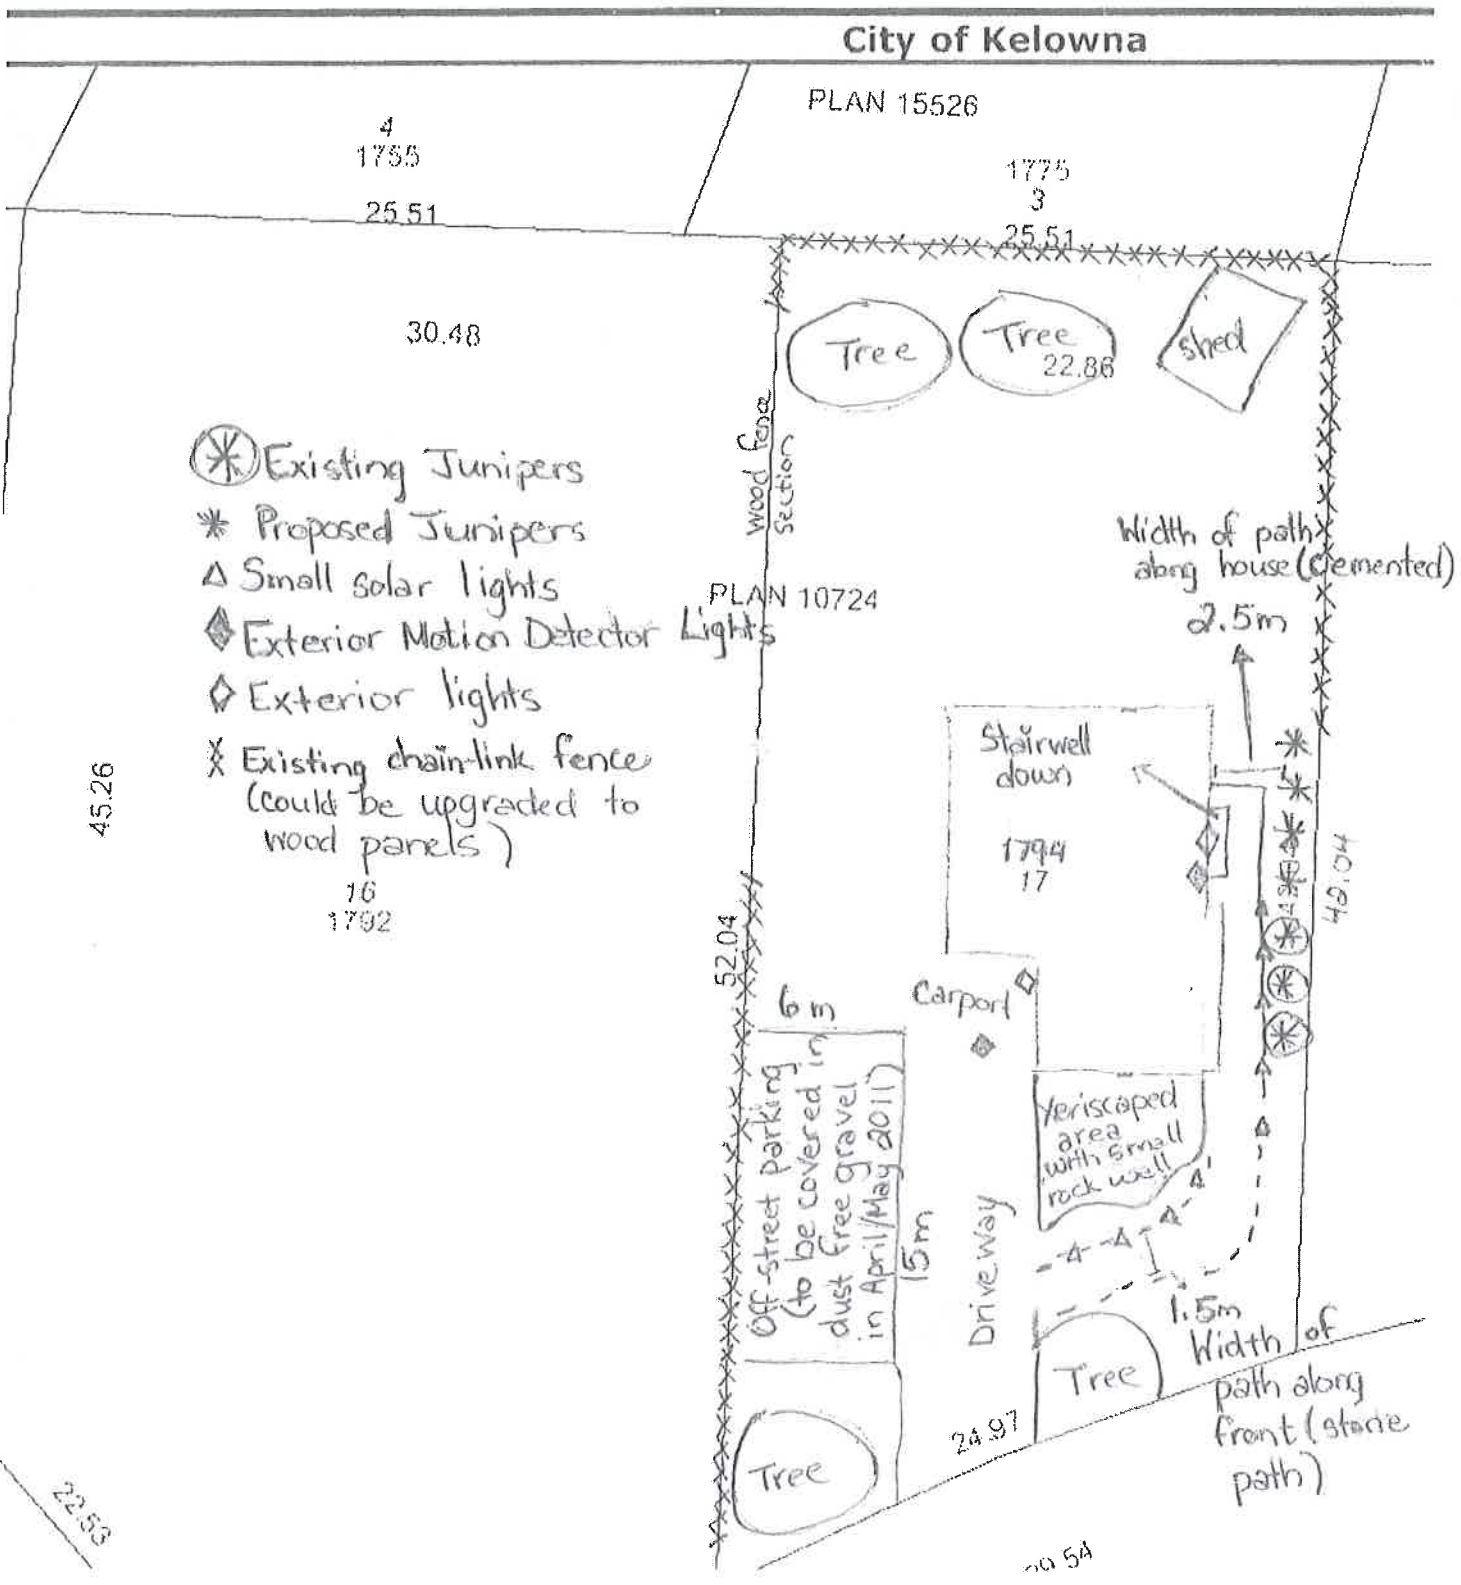 City of Kelowna
PLAN 15526
4
1755
25.51
1775
3
25.51
30.48
Tree
Tree
22.86
shed
Wood fence
Section
Existing Junipers
Proposed Junipers
Small solar lights
Exterior Motion Detector Lights
Exterior lights
Existing chain-link fence
(could be upgraded to
wood panels)
16
1792
45.26
PLAN 10724
Width of path
along house (cemented)
2.5m
Stairwell
down
1794
17
42.04
52.04
6m
Carport
Off-street parking
(to be covered in
dust free gravel
in April/May 2011)
15m
Driveway
Xeriscaped
area
with small
rock wall
1.5m
Width of
path along
front (stone
path)
Tree
24.97
Tree
22.53
54